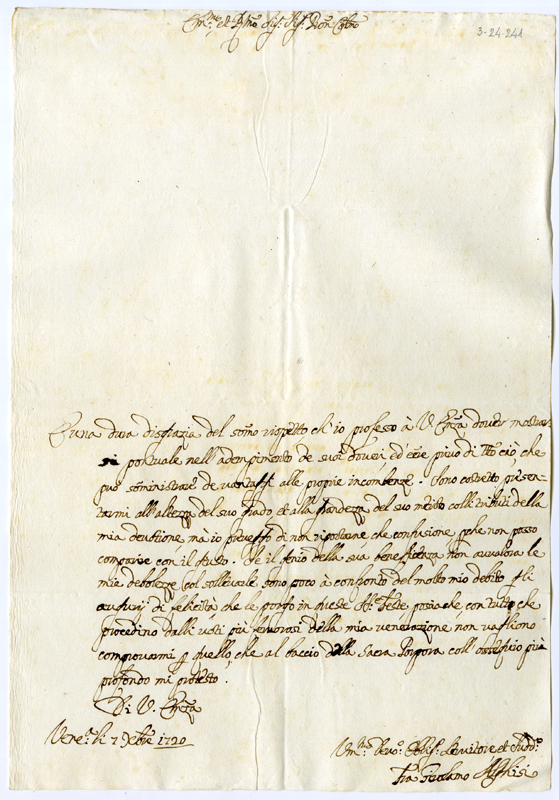 Em.mo et R.mo Sig.r Sig.r Pron Col.mo
3-24-241
È una dura disgrazia del som̃o rispetto ch'io professo à V. Em̃za dover mostrarsi
puntuale nell'adempimento de suoi doveri, ed esser privo di tt̃o ciò, che
può som̃inistrare de vantaggi alle proprie incombenze. Sono costretto presen-
tarmi all'altezza del suo grado, et alla grandezza del suo merito colli tributi della
mia devotione, mà io preveggo di non riportarne che confusione, perche non posso
comparire con il fasto. Se il genio della sua beneficenza non avvalora le
mie debolezze col sollevarle, sono poco à confronto del molto mio debito gli
augurj di felicità che le porgo in queste Ss.e Feste, posciache con tutto che
procedino dalli voti più fervorosi della mia veneratione non vagliono
comprovarmi per quello, che al baccio della Sacra Porpora coll'ossequio più
profondo mi protesto.
Di V. Em̃za
Ven.a li 7 Xbre 1720
Um.mo Devo.mo Oblig.mo Servitore et Sudd.o
Fra Girolamo Alghisi